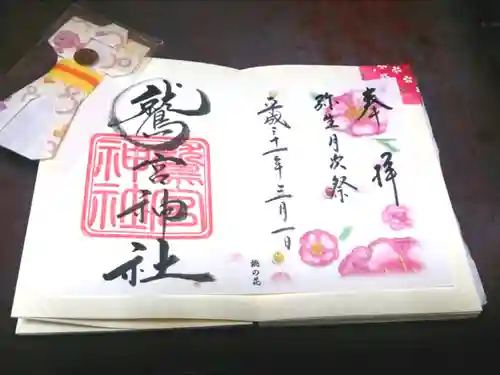 奉拝
弥生月次祭
平成三十一年三月一日
桃の花
鷲宮神社
鷲宮
神社